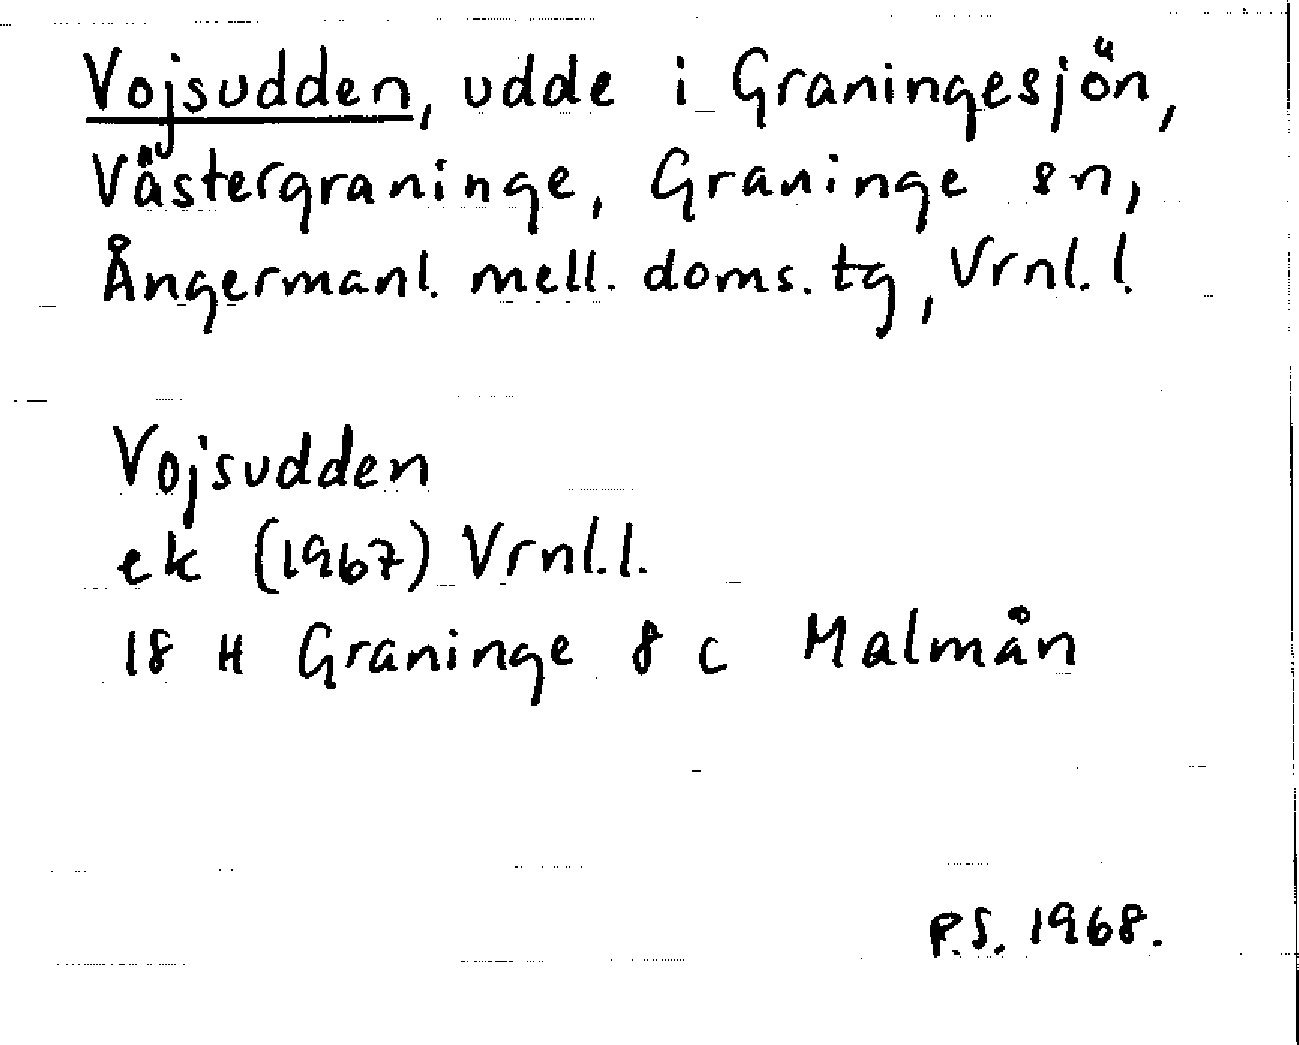 Vojsudden, udde i Graningesjön,
Västergraninge, Graninge sn,
Ångermanl. mell. doms. tg, Vrnl. l.
Vojsudden
ek (1967) Vrnl. l.
18 H Graninge 8 c Malmån
P.S. 1968.